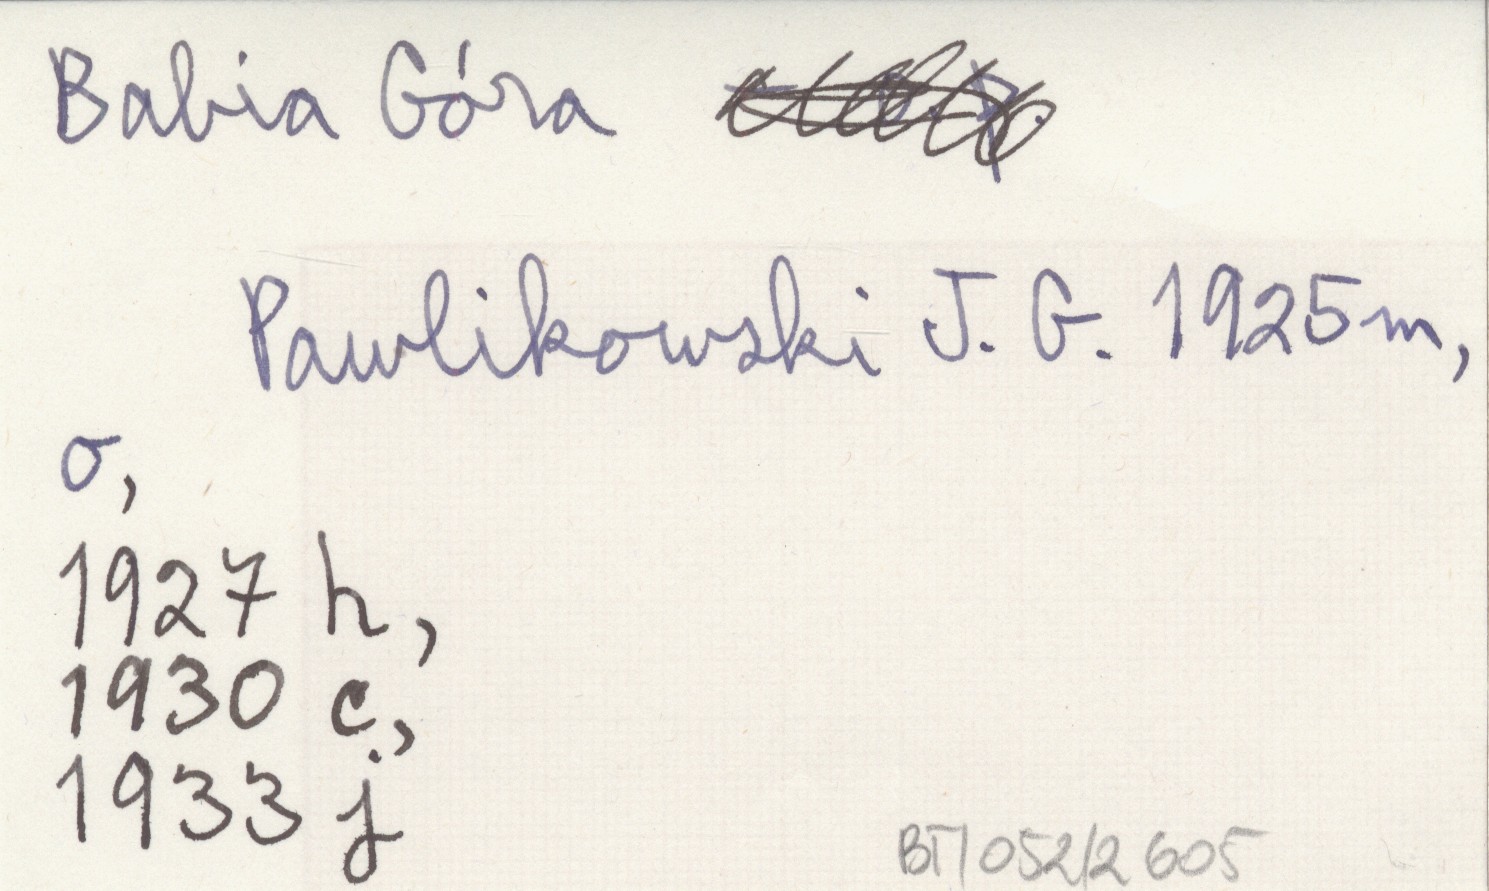 Babia Góra
Pawlikowski J. G. 1925 m,
o,
1927 h,
1930 c,
1933 j
BT/052/2 605